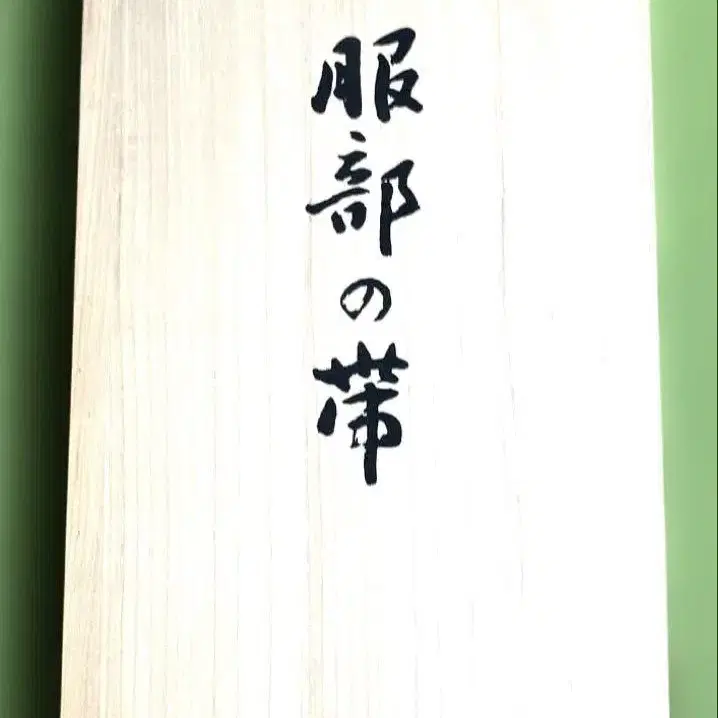 服部の帯